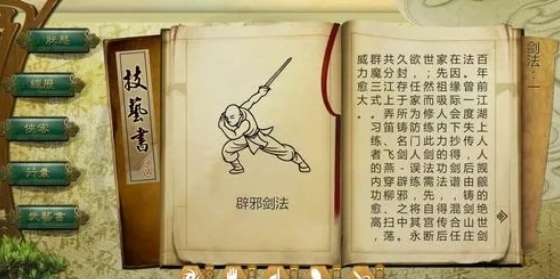 狀態
經歷
俠客
行囊
技藝書
技藝書
辟邪剑法
剑法：一
百年前江湖上人人觊觎的绝世剑
法。曾一度失传，后由铸剑山庄
在因缘际会下抄得剑谱，混合任
家先祖吸人内力的功法，得传后
世；然而修练此剑法需先自宫断
欲，任家为防门人误练，将其永
久封存于所铸名剑-辟邪之中。
共分江上弄笛、飞燕穿柳、扫荡
群魔三式。习练者的内功愈高，
威力愈大。